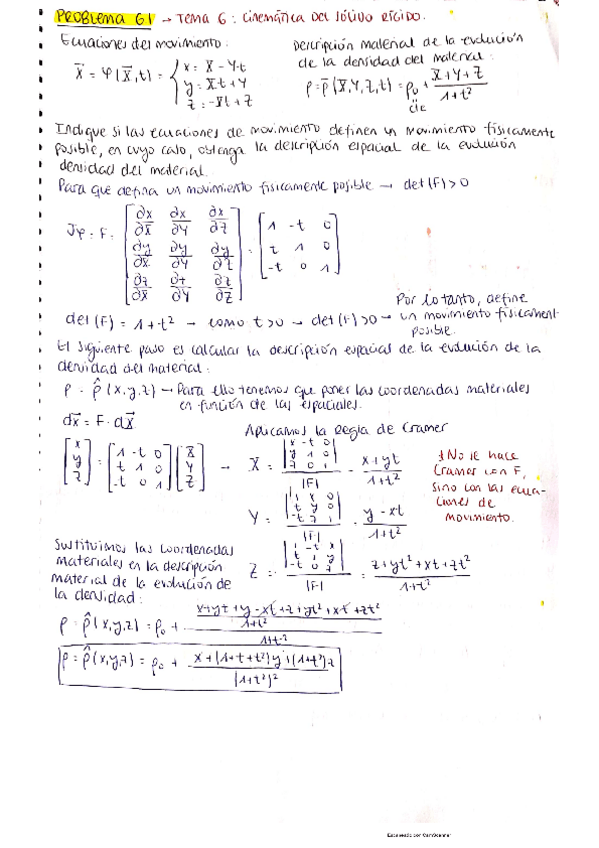 PROBLEMA 61 → TEMA 6: CINEMÁTICA DEL SÓLIDO RÍGIDO.
Ecuaciones del movimiento:
x = φ(X,t) = { x = X - Y·t
y = X·t + Y
z = -Xt + Z
Descripción material de la evolución
de la densidad del material:
ρ = ρ(X,Y,Z,t) = ρ0 + (X+Y+Z)/(1+t²)
cte
Indique si las ecuaciones de movimiento definen un movimiento físicamente
posible, en cuyo caso, obtenga la descripción espacial de la evolución
densidad del material.
Para que defina un movimiento físicamente posible → det(F) > 0
Jφ = F = [∂x/∂X ∂x/∂Y ∂x/∂Z
∂y/∂X ∂y/∂Y ∂y/∂Z
∂z/∂X ∂z/∂Y ∂z/∂Z] = [1 -t 0
t 1 0
-t 0 1]
det(F) = 1+t² → como t>0 → det(F)>0 →
Por lo tanto, define
un movimiento físicament
posible.
El siguiente paso es calcular la descripción espacial de la evolución de la
densidad del material:
ρ = ρ̂(x,y,z) → Para ello tenemos que poner las coordenadas materiales
en función de las espaciales.
dx = F·dX
Aplicamos la Regla de Cramer
[x y z] = [1 -t 0
t 1 0
-t 0 1] [X Y Z] →
X = |x -t 0
y 1 0
z 0 1| / |F| = (x+yt)/(1+t²)
Y = |1 x 0
t y 0
-t z 1| / |F| = (y-xt)/(1+t²)
Z = |1 -t x
t 1 y
-t 0 z| / |F| = (z+yt²+xt+zt²)/(1+t²)
*No se hace
Cramer con F,
sino con las ecua-
ciones de
movimiento.
Sustituimos las coordenadas
materiales en la descripción
material de la evolución de
la densidad:
ρ = ρ̂(x,y,z) = ρ0 + ((x+yt+y-xt+z+yt²+xt+zt²)/(1+t²))/(1+t²)
ρ = ρ̂(x,y,z) = ρ0 + (x+(1+t+t²)y+(1+t²)z)/(1+t²)²
Escaneado con CamScanner